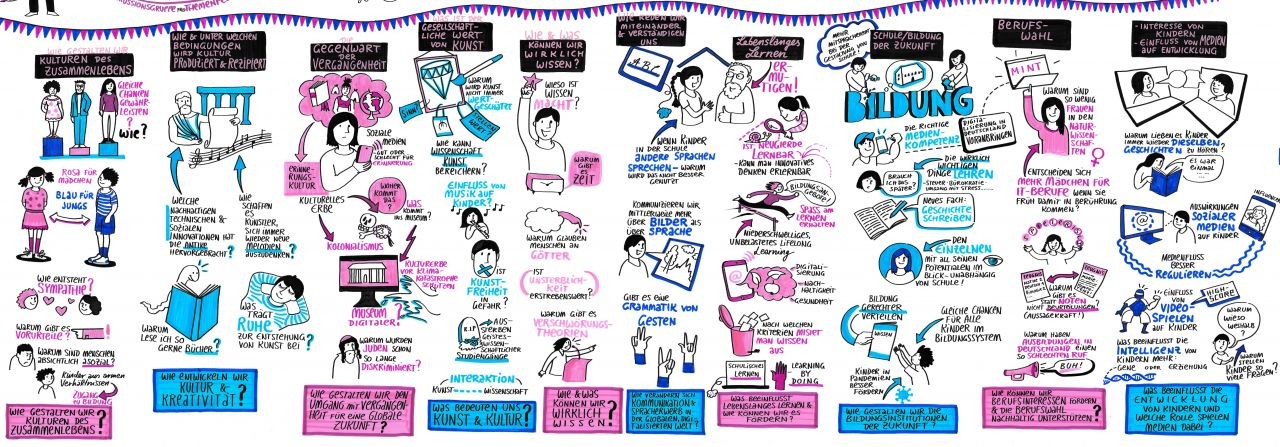 WIE GESTALTEN WIR
KULTUREN DES
ZUSAMMENLEBENS
GLEICHE
CHANCEN
GEWÄHR-
LEISTEN
?
Wie?
ROSA FÜR
MÄDCHEN
BLAU FÜR
JUNGS
WIE ENTSTEHT
SYMPATHIE?
WARUM GIBT ES
VORURTEILE?
WARUM SIND MENSCHEN
ABSICHTLICH ASOZIAL?
Kinder aus armen
Verhältnissen
ZUGANG
ZU BILDUNG
WIE GESTALTEN WIR
KULTUREN DES
ZUSAMMENLEBENS?
WIE & UNTER WELCHEN
BEDINGUNGEN
WIRD KULTUR
PRODUZIERT & REZIPIERT
WELCHE
NACHHALTIGEN
TECHNISCHEN &
SOZIALEN
INNOVATIONEN HAT
DIE ANTIKE
HERVORGEBRACHT?
WIE
SCHAFFEN
ES
KÜNSTLER,
SICH IMMER
WIEDER NEUE
MELODIEN
AUSZUDENKEN?
WARUM
LESE ICH SO
GERNE BÜCHER?
WAS
TRÄGT
RUHE
ZUR ENTSTEHUNG
VON KUNST BEI?
WIE ENTWICKELN WIR
KULTUR &
KREATIVITÄT?
DIE
GEGENWART
DER
VERGANGENHEIT
SOZIALE
MEDIEN
GUT ODER
SCHLECHT FÜR
ERINNERUNG
ERINNE-
RUNGS-
KULTUR
KULTURELLES
ERBE
WOHER
KOMMT
DAS?
WAS
KOMMT
INS MUSEUM?
KOLONIALISMUS
KULTURERBE
VOR KLIMA-
KATASTROPHE
SCHÜTZEN
MUSEUM
DIGITAL?
WARUM WURDEN
JUDEN SCHON
SO LANGE
DISKRIMINIERT?
WIE GESTALTEN WIR DEN
UMGANG MIT VERGANGEN-
HEIT FÜR EINE GLOBALE
ZUKUNFT?
GESELLSCHAFT-
LICHE WERT
VON KUNST
WARUM
WIRD KUNST
NICHT IMMER
WERT-
GESCHÄTZT
SINN?
WELCHEN
WERT
WIE KANN
WISSENSCHAFT
KUNST
BEREICHERN?
EINFLUSS VON
MUSIK AUF
KINDER?
IST
KUNST-
FREIHEIT
IN
GEFAHR?
R.I.P
AUS-
STERBEN
GEISTES-
WISSEN-
SCHAFTLICHER
STUDIENGÄNGE
INTERAKTION
KUNST WISSENSCHAFT
WAS BEDEUTEN UNS
KUNST & KULTUR?
WIE & WAS
KÖNNEN WIR
WIRKLICH
WISSEN?
WIESO IST
WISSEN
MACHT?
WARUM
GIBT ES
ZEIT
WARUM GLAUBEN
MENSCHEN AN
GÖTTER
IST
UNSTERBLICH-
KEIT
ERSTREBENSWERT?
WARUM GIBT ES
VERSCHWÖRUNGS-
THEORIEN
WIE & WAS
KÖNNEN WIR
WIRKLICH
WISSEN?
WIE REDEN WIR
MITEINANDER
& VERSTÄNDIGEN
UNS
ABC
WENN KINDER
IN DER SCHULE
ANDERE SPRACHEN
SPRECHEN – WARUM
WIRD DAS NICHT BESSER
GENUTZT
KOMMUNIZIEREN WIR
MITTLERWEILE MEHR
ÜBER BILDER ALS
ÜBER SPRACHE
GIBT ES EINE
GRAMMATIK VON
GESTEN
WIE VERÄNDERN SICH
KOMMUNIKATION &
SPRACHERWERB IN
DER GLOBALISIERTEN, DIGI-
TALISIERTEN WELT?
Lebenslanges
Lernen
ER-
MU-
TIGEN!
IST NEUGIERDE
LERNBAR?
KANN MAN INNOVATIVES
DENKEN ERLERNBAR
SPASS AM
LERNEN
ERHALTEN
NIEDERSCHWELLIGES,
UNBELASTETES LIFELONG
Learning
DIGITALI-
SIERUNG
NACH-
HALTIGKEIT
GESUNDHEIT
NACH WELCHEN
KRITERIEN MISST
MAN WISSEN
AUS
SCHULISCHES
LERNEN
LEARNING
BY
DOING
WAS BEEINFLUSST
LEBENSLANGES LERNEN &
WIE KÖNNEN WIR ES
FÖRDERN?
MEHR
MITSPRACHERECHT
BEI DER
GESTALTUNG VON
SCHULE!
SCHULE/BILDUNG
DER ZUKUNFT
BILDUNG
DIE RICHTIGE
MEDIEN-
KOMPETENZ
DIGITA-
LISIERUNG IN
DEUTSCHLAND
VORANBRINGEN
BRAUCH
ICH DAS
SPÄTER?
DIE WIRKLICH
WICHTIGEN
DINGE LEHREN
-STEUER-BÜROKRATIE-
UMGANG MIT STRESS...
NEUES FACH:
GESCHICHTE
SCHREIBEN
DEN
EINZELNEN
MIT ALL SEINEN
POTENTIALEN IM
BLICK-UNABHÄNGIG
VON SCHULE!
BILDUNG
GERECHTER
VERTEILEN
WISSEN
GLEICHE CHANCEN
FÜR ALLE
KINDER IM
BILDUNGSSYSTEM
KINDER IN
PANDEMIEN
BESSER
FÖRDERN
WIE GESTALTEN WIR DIE
BILDUNGSINSTITUTIONEN
DER ZUKUNFT?
BERUFS-
WAHL
MINT
WARUM SIND
SO WENIG
FRAUEN
IN DEN
NATUR-
WISSEN-
SCHAF-
TEN
ENTSCHEIDEN SICH
MEHR MÄDCHEN FÜR
IT-BERUFE WENN SIE
FRÜH DAMIT IN BERÜHRUNG
KOMMEN?
WARUM
GIBT ES
NOTEN
STATT
BEURTEILUNGEN?
(AUSSAGEKRAFT?)
WARUM HABEN
AUSBILDUNGEN IN
DEUTSCHLAND EINEN
SO SCHLECHTEN RUF
BUH!
WIE KÖNNEN WIR
BERUFSINTERESSEN FÖRDERN
& DIE BERUFSWAHL
NACHHALTIG UNTERSTÜTZEN?
- INTERESSE VON
KINDERN
- EINFLUSS VON MEDIEN
AUF ENTWICKLUNG
WARUM LIEBEN ES KINDER
IMMER WIEDER DIESELBEN
GESCHICHTEN
ZU HÖREN?
ES WAR
EINMAL...
AUSWIRKUNGEN
SOZIALER
MEDIEN
AUF KINDER
MEDIENFLUT
BESSER
REGULIEREN
EINFLUSS
VON
VIDEO
SPIELEN
AUF KINDER
HIGH-
SCORE!
WARUM
WIESO
WESHALB?
WAS BEEINFLUSST DIE
INTELLIGENZ VON
KINDERN MEHR:
GENE ODER ERZIEHUNG
WARUM
STELLEN
KINDER SO
VIELE FRAGEN?
WAS BEEINFLUSST DIE
ENTWICKLUNG
VON KINDERN UND
WELCHE ROLLE SPIELEN
MEDIEN DABEI?